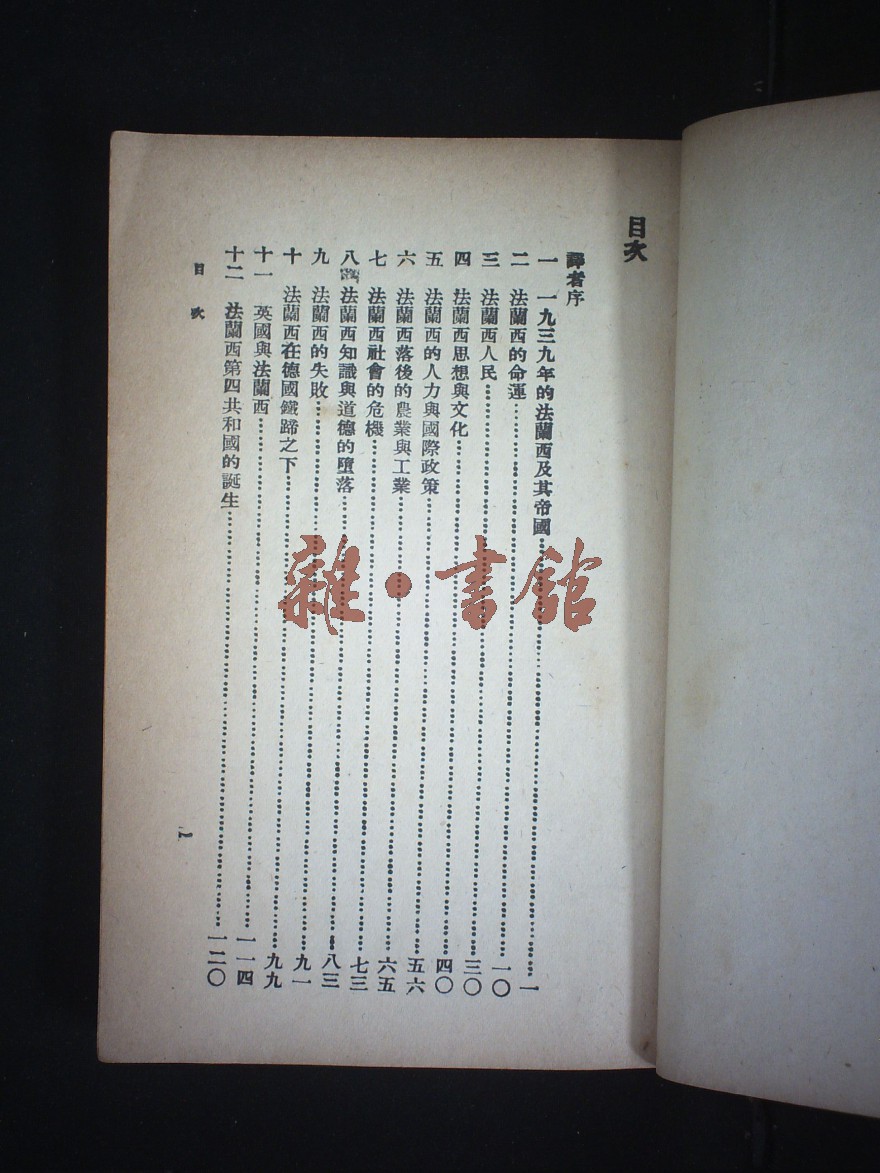 目次
譯者序
一　一九三九年的法蘭西及其帝國……………………一
二　法蘭西的命運……………………一〇
三　法蘭西人民……………………三〇
四　法蘭西思想與文化……………………四〇
五　法蘭西的人力與國際政策……………………五六
六　法蘭西落後的農業與工業……………………六五
七　法蘭西社會的危機……………………七三
八　法蘭西知識與道德的墮落……………………八三
九　法蘭西的失敗……………………九一
十　法蘭西在德國鐵蹄之下……………………九九
十一　英國與法蘭西……………………一一四
十二　法蘭西第四共和國的誕生……………………一二〇
目次
雜·書館